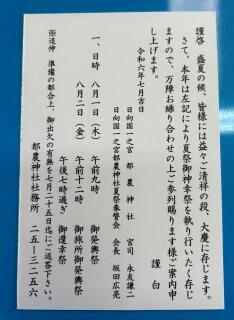 謹啓　盛夏の候、皆様には益々ご清祥の段、大慶に存じます。
さて、本年は左記により夏祭御神幸祭を執り行いたく存じ
ますので、万障お繰り合わせの上ご参列賜ります様ご案内申
し上げます。
謹　白
令和六年七月吉日
日向国一之宮　都　農　神　社　　宮　司　永友謙二
日向国一之宮都農神社夏祭奉賛会　会　長　坂田広亮
一、日時　八月一日（木）　午前九時　　御発輿祭
午前十二時　御旅所御発輿祭
八月二日（金）　午後七時過ぎ　御還幸祭
※追伸　準備の都合上、御出欠の有無を七月二十五日迄にご返答下さい。
都農神社社務所　二五ー三二五六